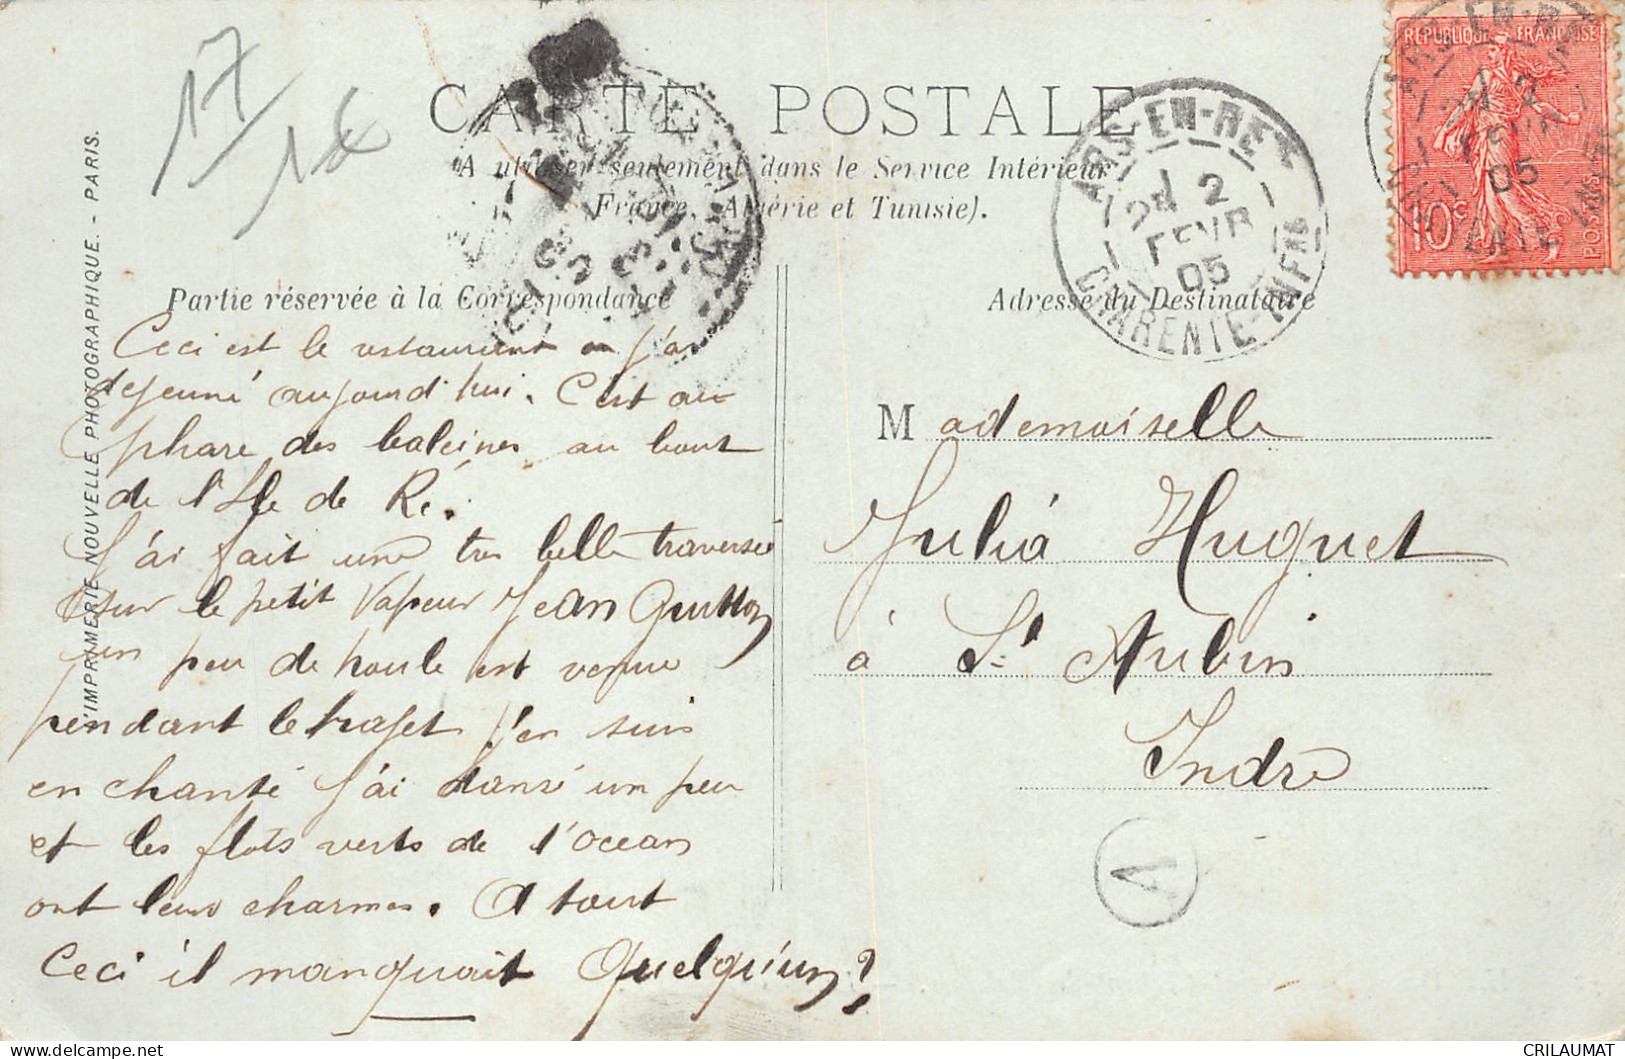 17
18
CARTE POSTALE
A utiliser seulement dans le Service Intérieur
France, Algérie et Tunisie).
ARS-EN-RE
2
FEVR
05
CHARENTE-INFRE
REPUBLIQUE FRANÇAISE
10c
POSTES
L'IMPRIMERIE NOUVELLE PHOTOGRAPHIQUE. - PARIS.
Partie réservée à la Correspondance
Ceci est le restaurant ou j'ai
dejeuné aujourd'hui. C'est au
phare des baleines au bout
de l'Ile de Ré.
J'ai fait une tres belle traversée
sur le petit vapeur Jean Guitton
un peu de houle est venue
pendant le trajet j'en suis
enchanté j'ai dansé un peu
et les flots verts de l'ocean
ont leur charmes. A tout
Ceci il manquait Quelqu'un?
Adresse du Destinataire
Mademoiselle
Julia Huguet
à St Aubin
Indre
A
CRILAUMAT